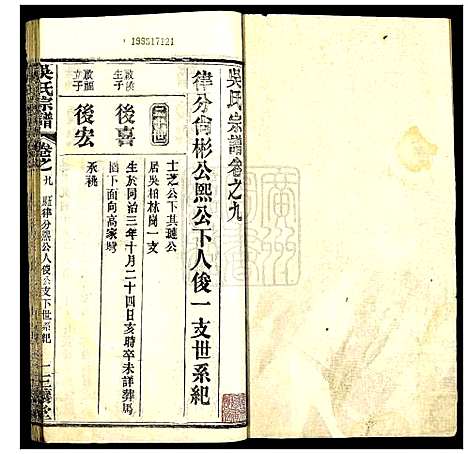 199517121
吳氏宗譜卷之九
律分倫彬公熙公下人俊一支世系紀
士芝公下其璉公
居吳柏林崗一支
二十世
啟
生子
後喜
生於同治三年十月二十四日亥時卒未詳葬馬
園下面向高家塆
立子
後宏
承祧
吳氏宗譜
卷之九
律分熙公人俊公支下世系紀
三讓堂